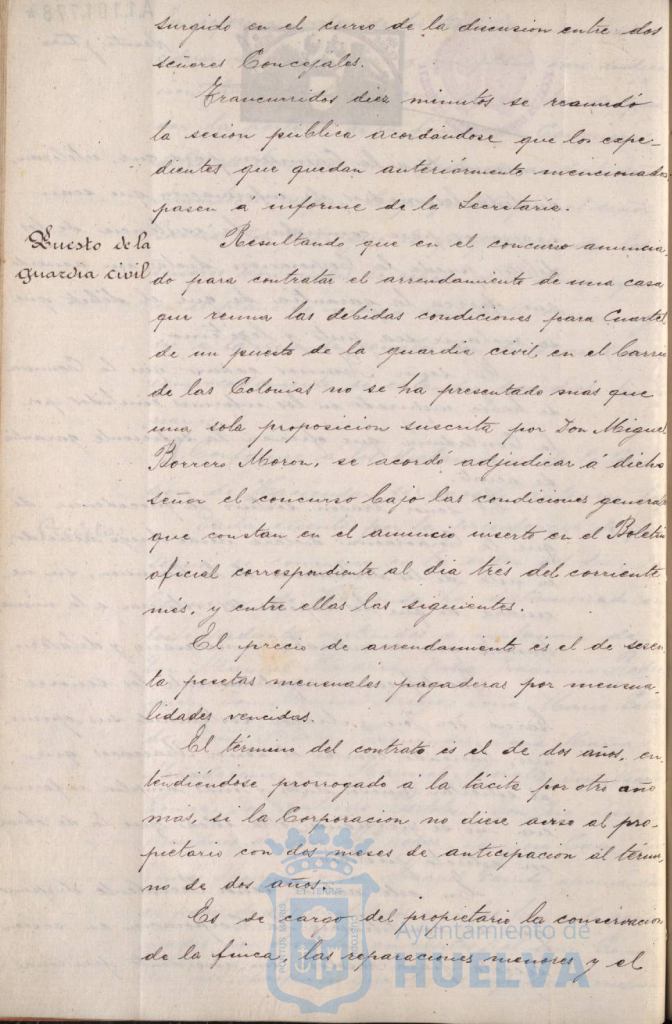 surgido en el curso de la discusion entre dos
señores Concejales.
Trancurridos diez minutos se reanudó
la sesion pública acordándose que los expe-
dientes que quedan anteriormente mencionados
pasen a informe de la Secretaria.
Puesto de la
guardia civil
Resultando que en el concurso anuncia-
do para contratar el arrendamiento de una casa
que reuna las debidas condiciones para Cuartel
de un puesto de la guardia civil en el barrio
de las Colonias no se ha presentado más que
una sola proposicion suscrita por Don Miguel
Borrero Moron, se acordó adjudicar á dicho
señor el concurso bajo las condiciones generales
que constan en el anuncio inserto en el Boletin
oficial correspondiente al dia trés del corriente
més, y entre ellas las siguientes.
El precio de arrendamiento és el de sesen-
ta pesetas mensuales pagaderas por mensua-
lidades vencidas.
El término del contrato és el de dos años, en-
tendiéndose prorrogado á la tácita por otro año
más, si la Corporacion no diese aviso al pro-
pietario con dos meses de anticipacion al térmi-
no de dos años.
Es de cargo del propietario la conservacion
de la finca, las reparaciones menores y el
Ayuntamiento de
HUELVA